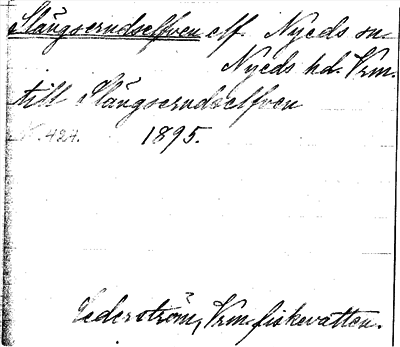 Slängserudselfven elf. Nyeds sn
Nyeds hd. Vrm.
till Slängserudselfven
N. 424. 1895.
Cederström, Vrm. fiskevatten.